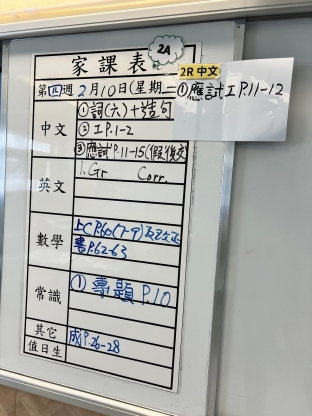 2A
家課表
第四週2月10日(星期一
2R 中文
①應試工P.11-12
中文
①詞(六)+造句
②工P.1-2
③應試P.11-15(假後交
英文
1. Gr Corr.
數學
上C P.60(7-9)及改正
書P.62-63
常識
①專題 P.10
其它
成P.26-28
值日生